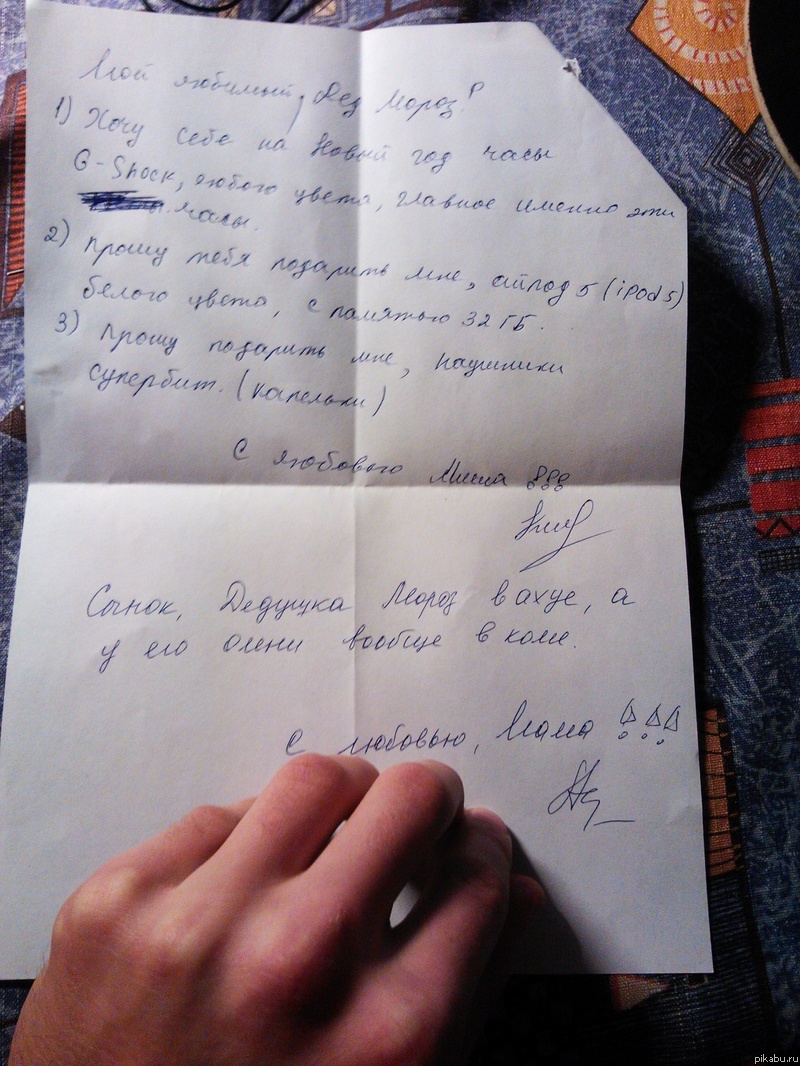 Мой любимый, Дед Мороз!
1) Хочу себе на Новый год часы
G-Shock, любого цвета, главное именно эти
часы.
2) Прошу тебя подарить мне, айпод 5 (iPod 5)
белого цвета, с памятью 32 ГБ.
3) Прошу подарить мне, наушники
супербит. (капельки)
С любовью Миша !!!
Сынок, Дедушка Мороз в ахуе, а
у его олени вообще в коме.
С любовью, Мама !!!
pikabu.ru